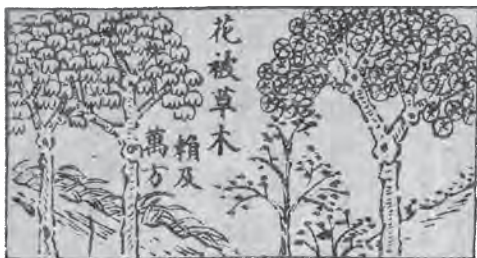 花被草木
賴及
萬方